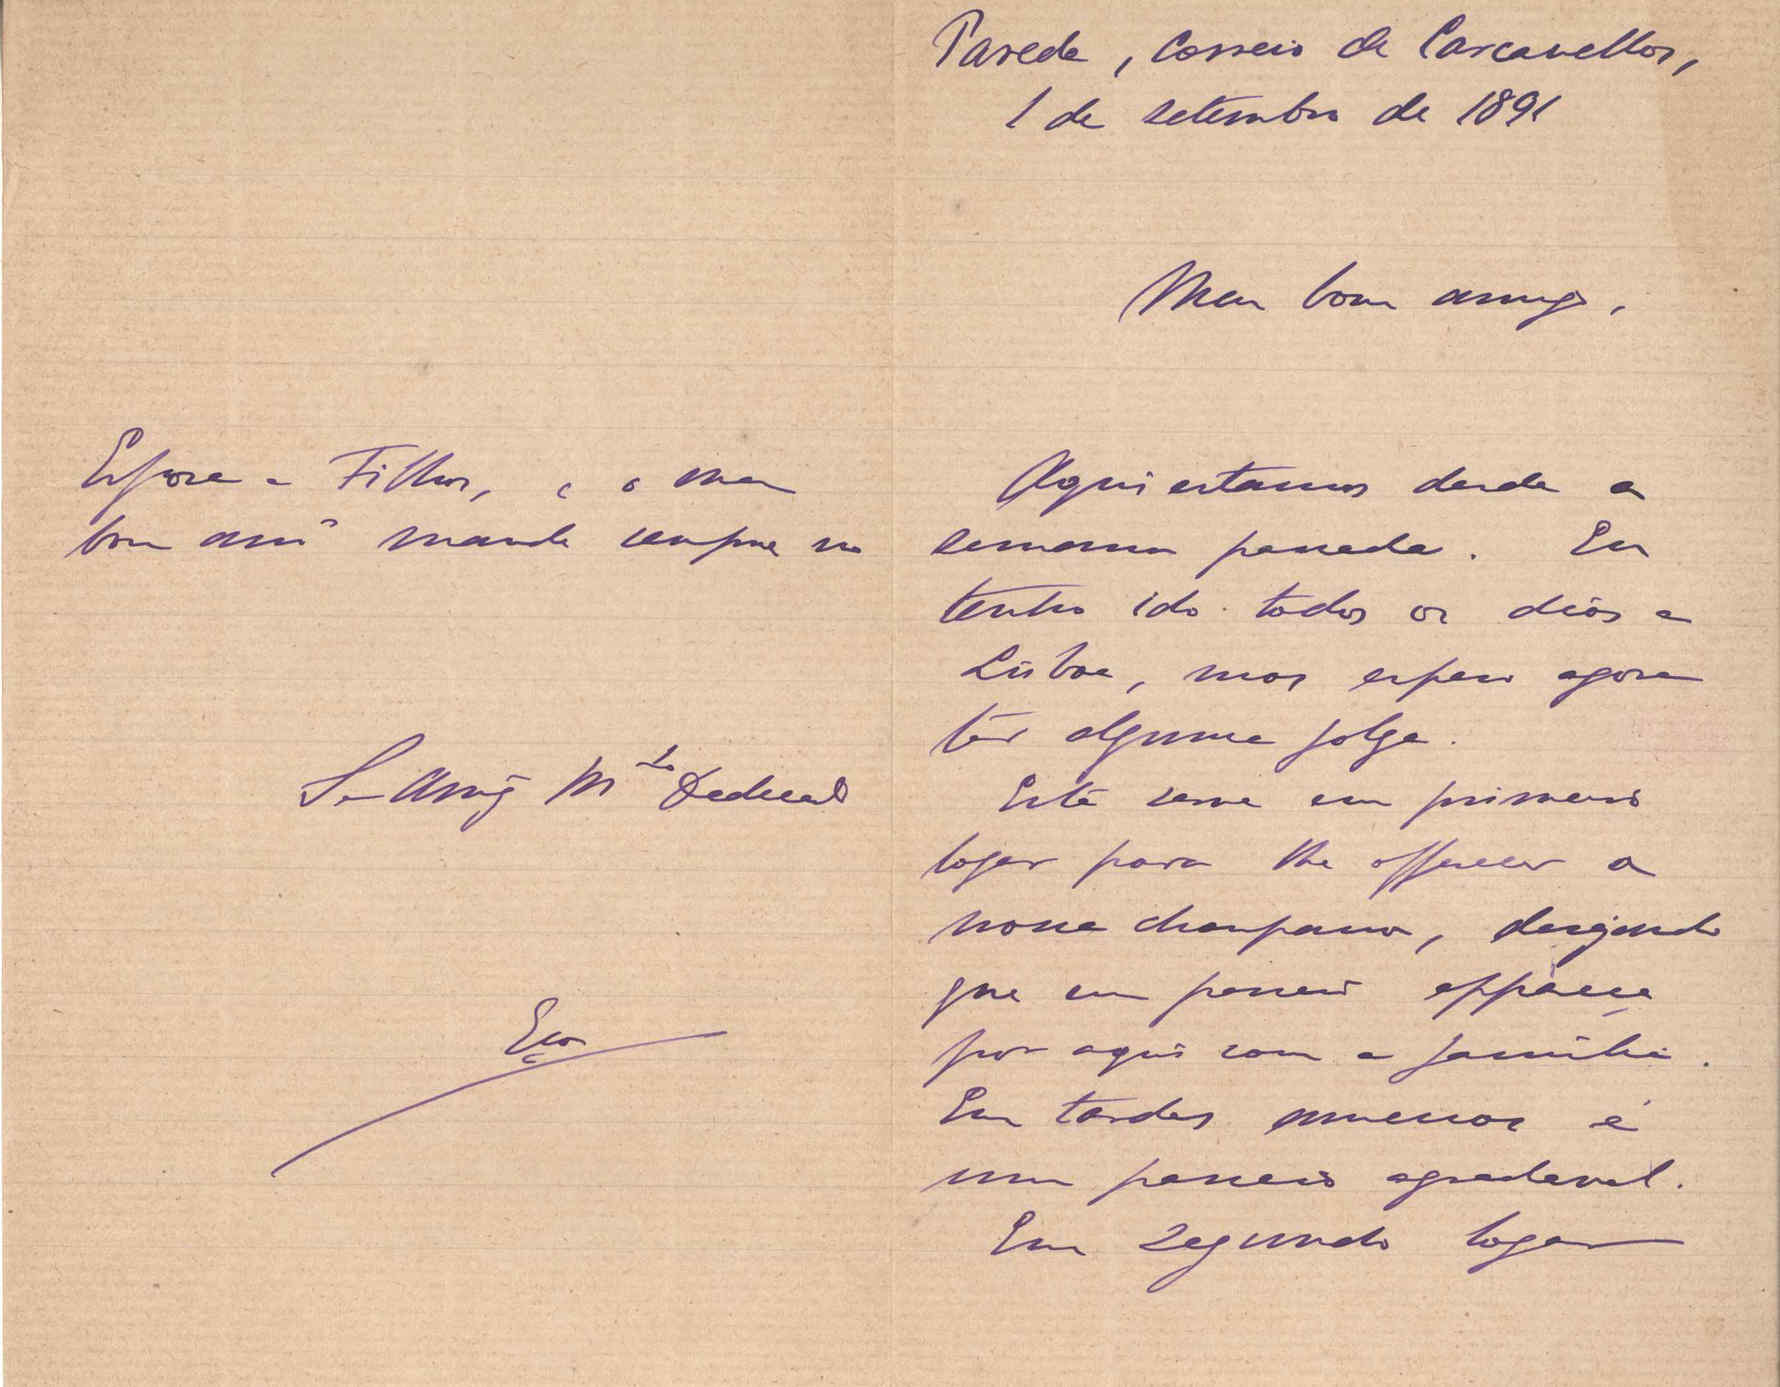 Parede, Correio de Carcavellos,
1 de setembro de 1891
Meu bom amigo,
Aqui estamos desde a
semana passada. Eu
tenho ido todos os dias a
Lisboa, mas espero agora
ter alguma folga.
Esta serve em primeiro
logar para lhe offerecer a
nossa choupana, desejando
que em passeio appareça
por aqui com a familia.
Em tardes amenas é
um passeio agradavel.
Em segundo logar
Esposa e Filhos, e o meu
bom amº mande sempre no
Seu Amigº Mto Dedicado
Eça